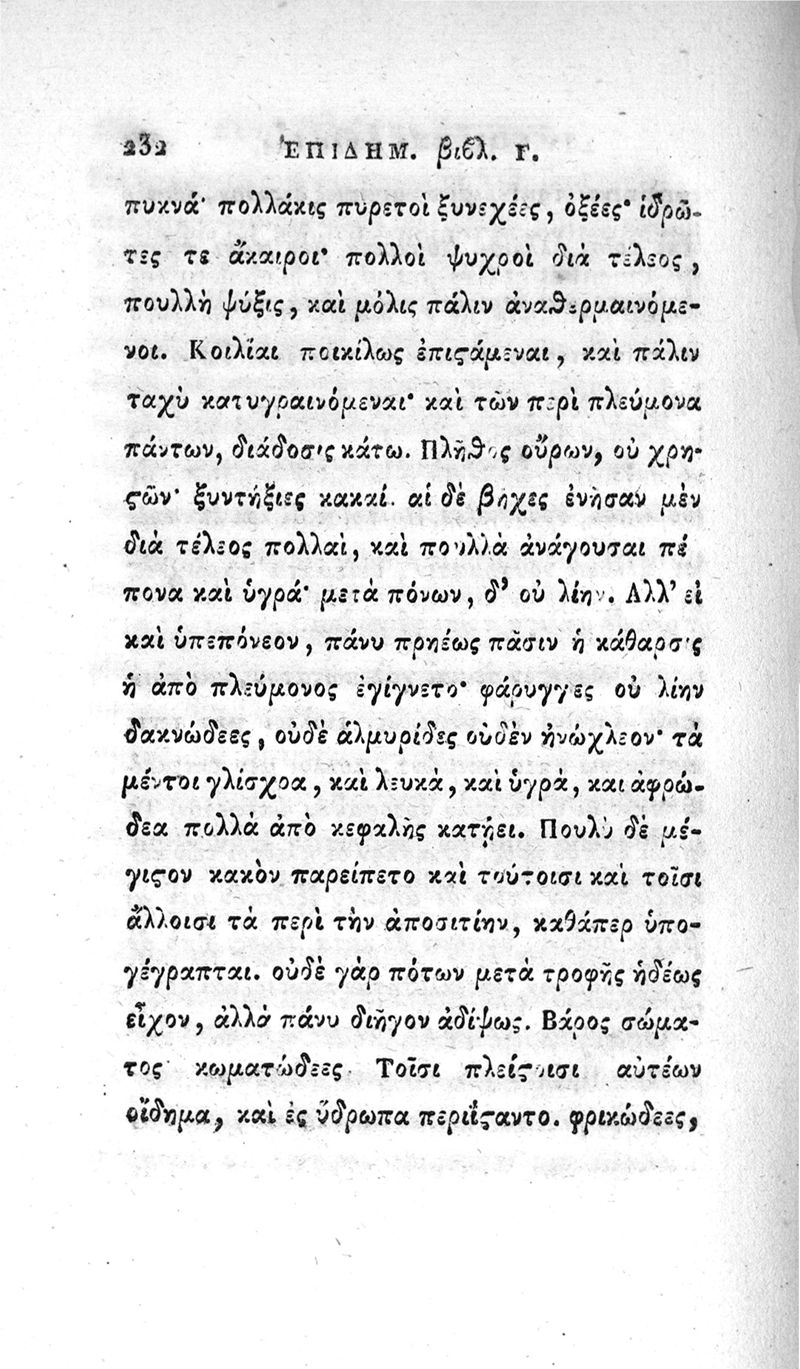 232 ἘΠΙΔΗΜ. βιϐλ. Γ.
πυκνά· πολλάκις πυρετοὶ ξυνεχέες, ὀξέες· ἱδρῶ-
τες τε ἄκαιροι· πολλοὶ ψυχροὶ διὰ τέλεος,
πουλλὴ ψύξις, καὶ μόλις πάλιν ἀναθερμαινόμε-
νοι. Κοιλίαι ποικίλως ἐπιϛάμεναι, καὶ πάλιν
ταχὺ κατυγραινόμεναι· καὶ τῶν περὶ πλεύμονα
πάντων, διάδοσις κάτω. Πλῆθος οὔρων, οὐ χρη-
ϛῶν· ξυντήξιες κακαί. αἱ δὲ βῆχες ἐνῆσαν μὲν
διὰ τέλεος πολλαὶ, καὶ πουλλὰ ἀνάγουσαι πέ
πονα καὶ ὑγρά· μετὰ πόνων, δ’ οὐ λίην. Αλλ’ εἰ
καὶ ὑπεπόνεον, πάνυ πρηέως πᾶσιν ἡ κάθαρσις
ἡ ἀπὸ πλεύμονος ἐγίγνετο· φάρυγγες οὐ λίην
δακνώδεες, οὐδὲ ἁλμυρίδες οὐδὲν ἠνώχλεον· τὰ
μέντοι γλίσχρα, καὶ λευκὰ, καὶ ὑγρὰ, και ἀφρώ-
δεα πολλὰ ἀπὸ κεφαλῆς κατῄει. Πουλὺ δὲ μέ-
γιϛον κακὸν παρείπετο καὶ τούτοισι καὶ τοῖσι
ἄλλοισι τὰ περὶ τὴν ἀποσιτίην, καθάπερ ὑπο-
γέγραπται. οὐδὲ γὰρ πότων μετὰ τροφῆς ἡδέως
εἶχον, ἀλλὰ πάνυ διῆγον ἀδίψως. Βάρος σώμα-
τος· κωματώδεες· Τοῖσι πλείϛοισι αὐτέων
οἴδημα, καὶ ἐς ὕδρωπα περιΐϛαντο. φρικώδεες,